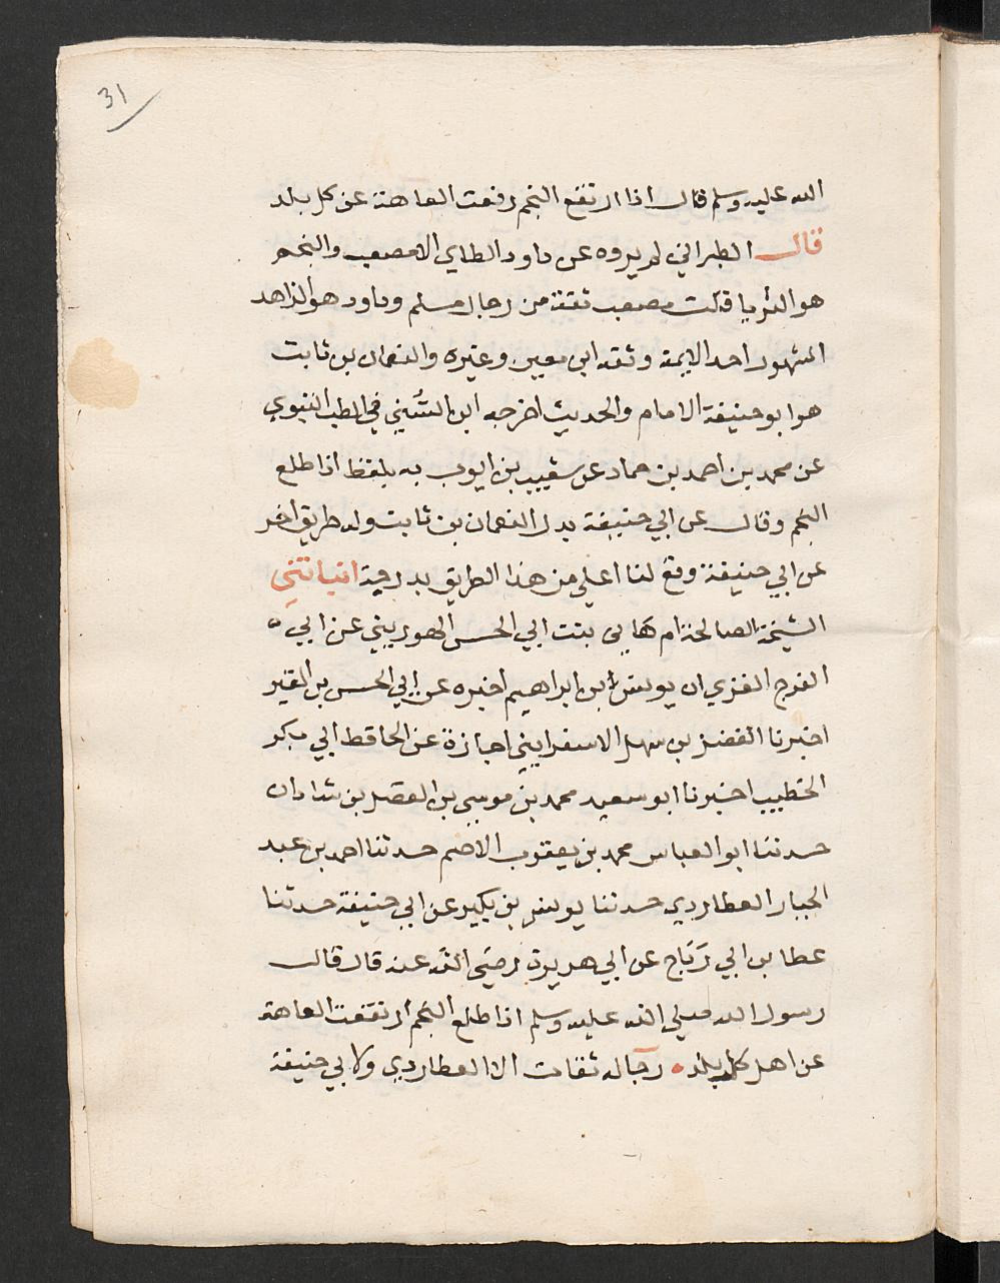 31
الله عليه وسلم قال اذا ارتفع النجم رفعت العاهة عن كل بلد
قال الطبراني لم يروه عن داود الطاي الا مصعب والنجم
هو الثريا قلت مصعب ثقة من رجال مسلم وداود هو الزاهد
المشهور احد الايمة وثقه ابن معين وغيره والنعمان بن ثابت
هو ابو حنيفة الامام والحديث اخرجه ابن السُّني في الطب النبوي
عن محمد بن احمد بن حماد عن شعيب بن ايوب به بلفظ اذا طلع
النجم وقال عن ابي حنيفة بدل النعمان بن ثابت وله طريق اخر
عن ابي حنيفة وقع لنا اعلي من هذا الطريق بدرجة انبانتنِي
الشيخة الصالحة ام هاني بنت ابي الحسن الهوريني عن ابي
الفرج الغزي ان يونس ابن ابراهيم اخبره عن ابي الحسن بن المقير
اخبرنا الفضل بن سهل الاسفرايني اجازة عن الحافظ ابي بكر
الخطيب اخبرنا ابو سعيد محمد بن موسي بن الفضل بن شاذان
حدثنا ابو العباس محمد بن يعقوب الاصم حدثنا احمد بن عبد
الجبار العطاردي حدثنا يونس بن بكير عن ابي حنيفة حدثنا
عطا بن ابي رَبَاح عن ابي هريرة رضي الله عنه قال قال
رسول الله صلي الله عليه وسلم اذا طلع النجم ارتفعت العاهة
عن اهل كل بلد رجاله ثقات الا العطاردي ولابي حنيفة